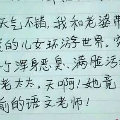 天气不错,我和老婆带
的儿女环游世界,突
浑身恶臭,满脏污
老太太,天啊!她竟
的语文老师!